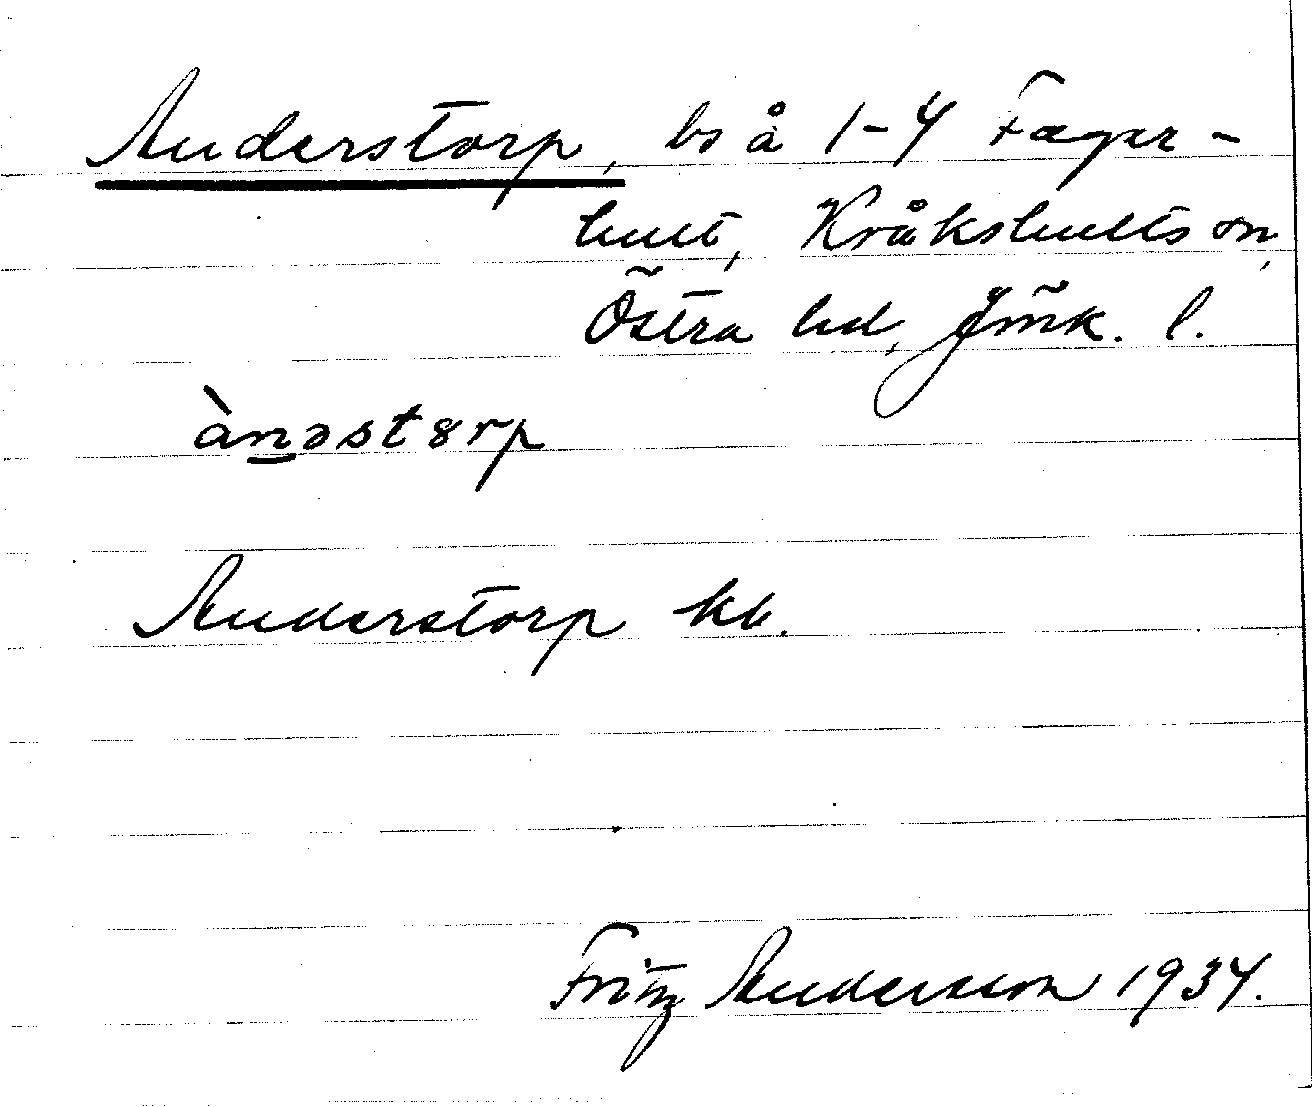 Anderstorp, bs å 1-4 Fager-
hult, Kråkshults sn,
Östra hd, Jönk. l.
àn̲əstɵrp
Anderstorp kb.
Fritz Andersson 1934.